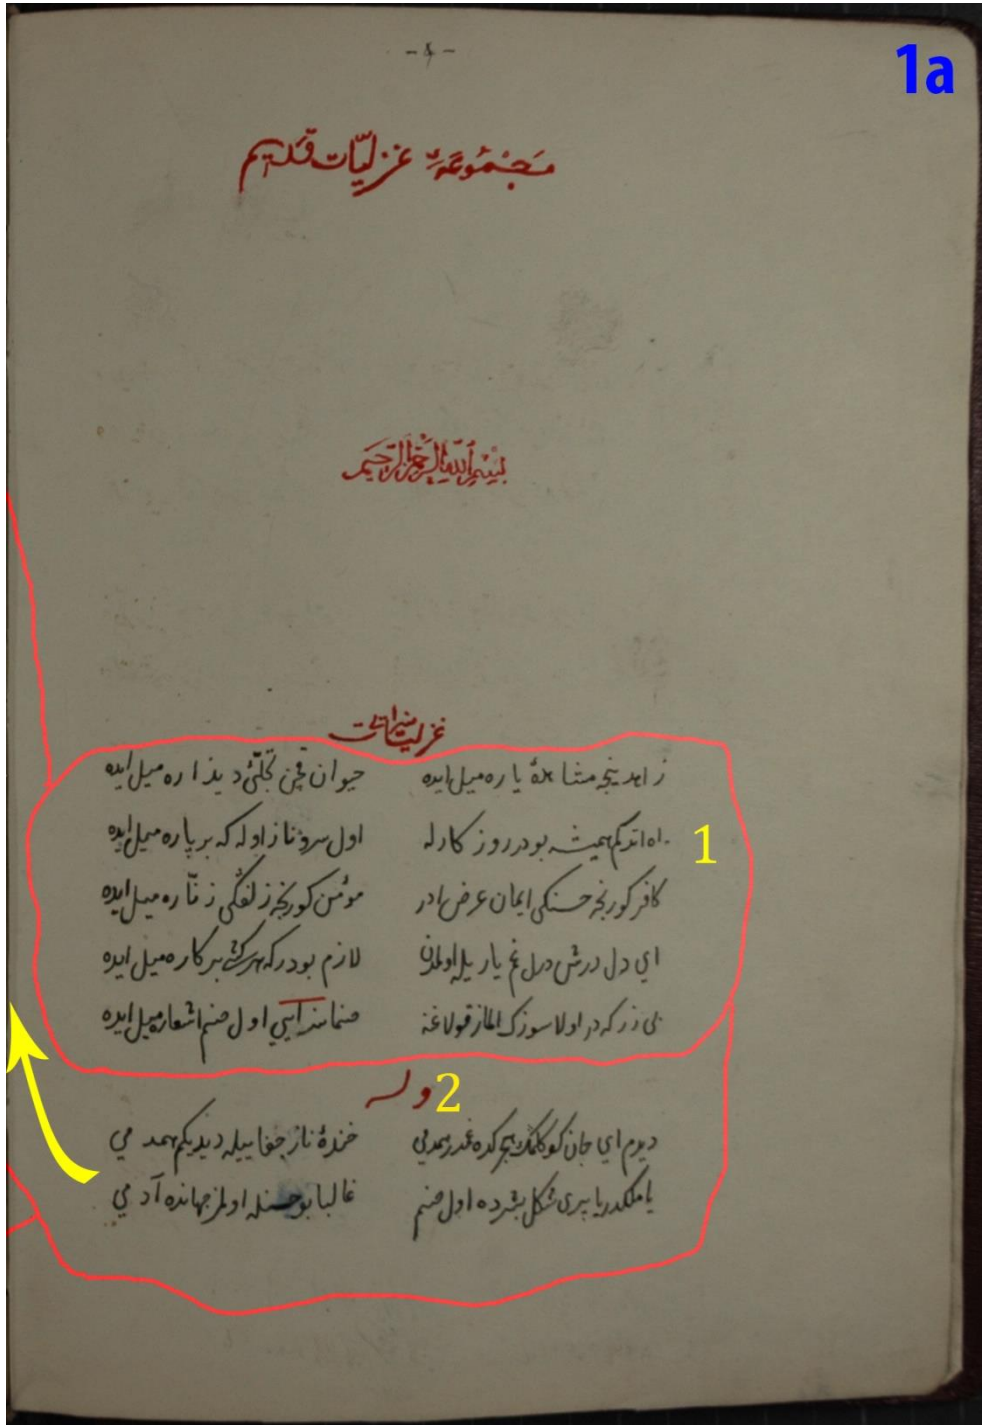 1a
- ۴ -
مَجْمُوعَهِٔ غزلیّات قدیم
بِسْمِ ٱللّٰهِ الرَّحْمٰنِ الرَّحِیمِ
غزلیات
زاهد نیجه مشاهدهٔ یاره میل ایده حیوان قچن تجلّئ دیداره میل ایده
اول سرو ناز اوله که بر پاره میل ایده
1
کافر کورنجه حسنکی ایمان عرض ادر مؤمن کورنجه زلفکی زنّاره میل ایده
ای دل درش درل غم یار یله اولمدن لازم بودرکه هرکشی بر کاره میل ایده
اول صنم اشعاره میل ایده
وله
2
دیدم ای جان کوکلمک هیچ کده غدر همدمی خندهٔ ناز جفا ییله دیدی کم همدمی
یا ملکدر یا پری شکل بشرده اول صنم غالبا بو حسنله اولمز جهانده آدمی